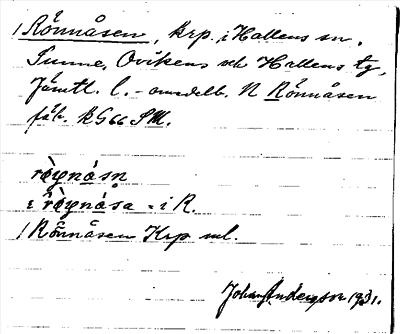 / Rönnåsen, krp. i Hallens sn,
Sunne, Ovikens och Hallens tg,
Jämtl. l. - omedelb. N Rönnåsen
fäb. KG66 SM.
i = i R.
/ Rönnåsen Krp ml.
Johan Anderson 1931.